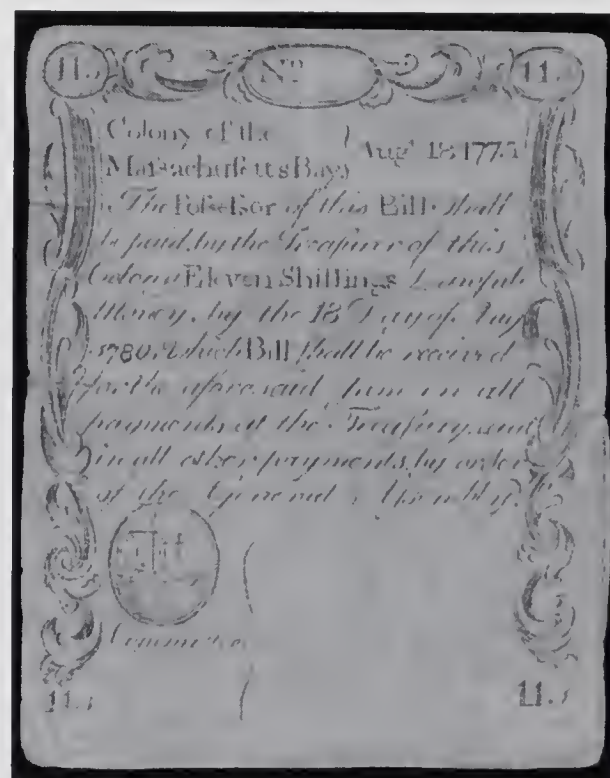 11.s No. 11.s
Colony of the
Massachusetts Bay } Augt. 18. 1775
The Possessor of this Bill shall
be paid, by the Treasurer of this
Colony Eleven Shillings Lawful
Money, by the 18 Day of Aug
1780. Which Bill shall be received
for the aforesaid sum in all
payments at the Treasury, and
in all other payments, by order
of the General Assembly.
Committee
11.s 11.s